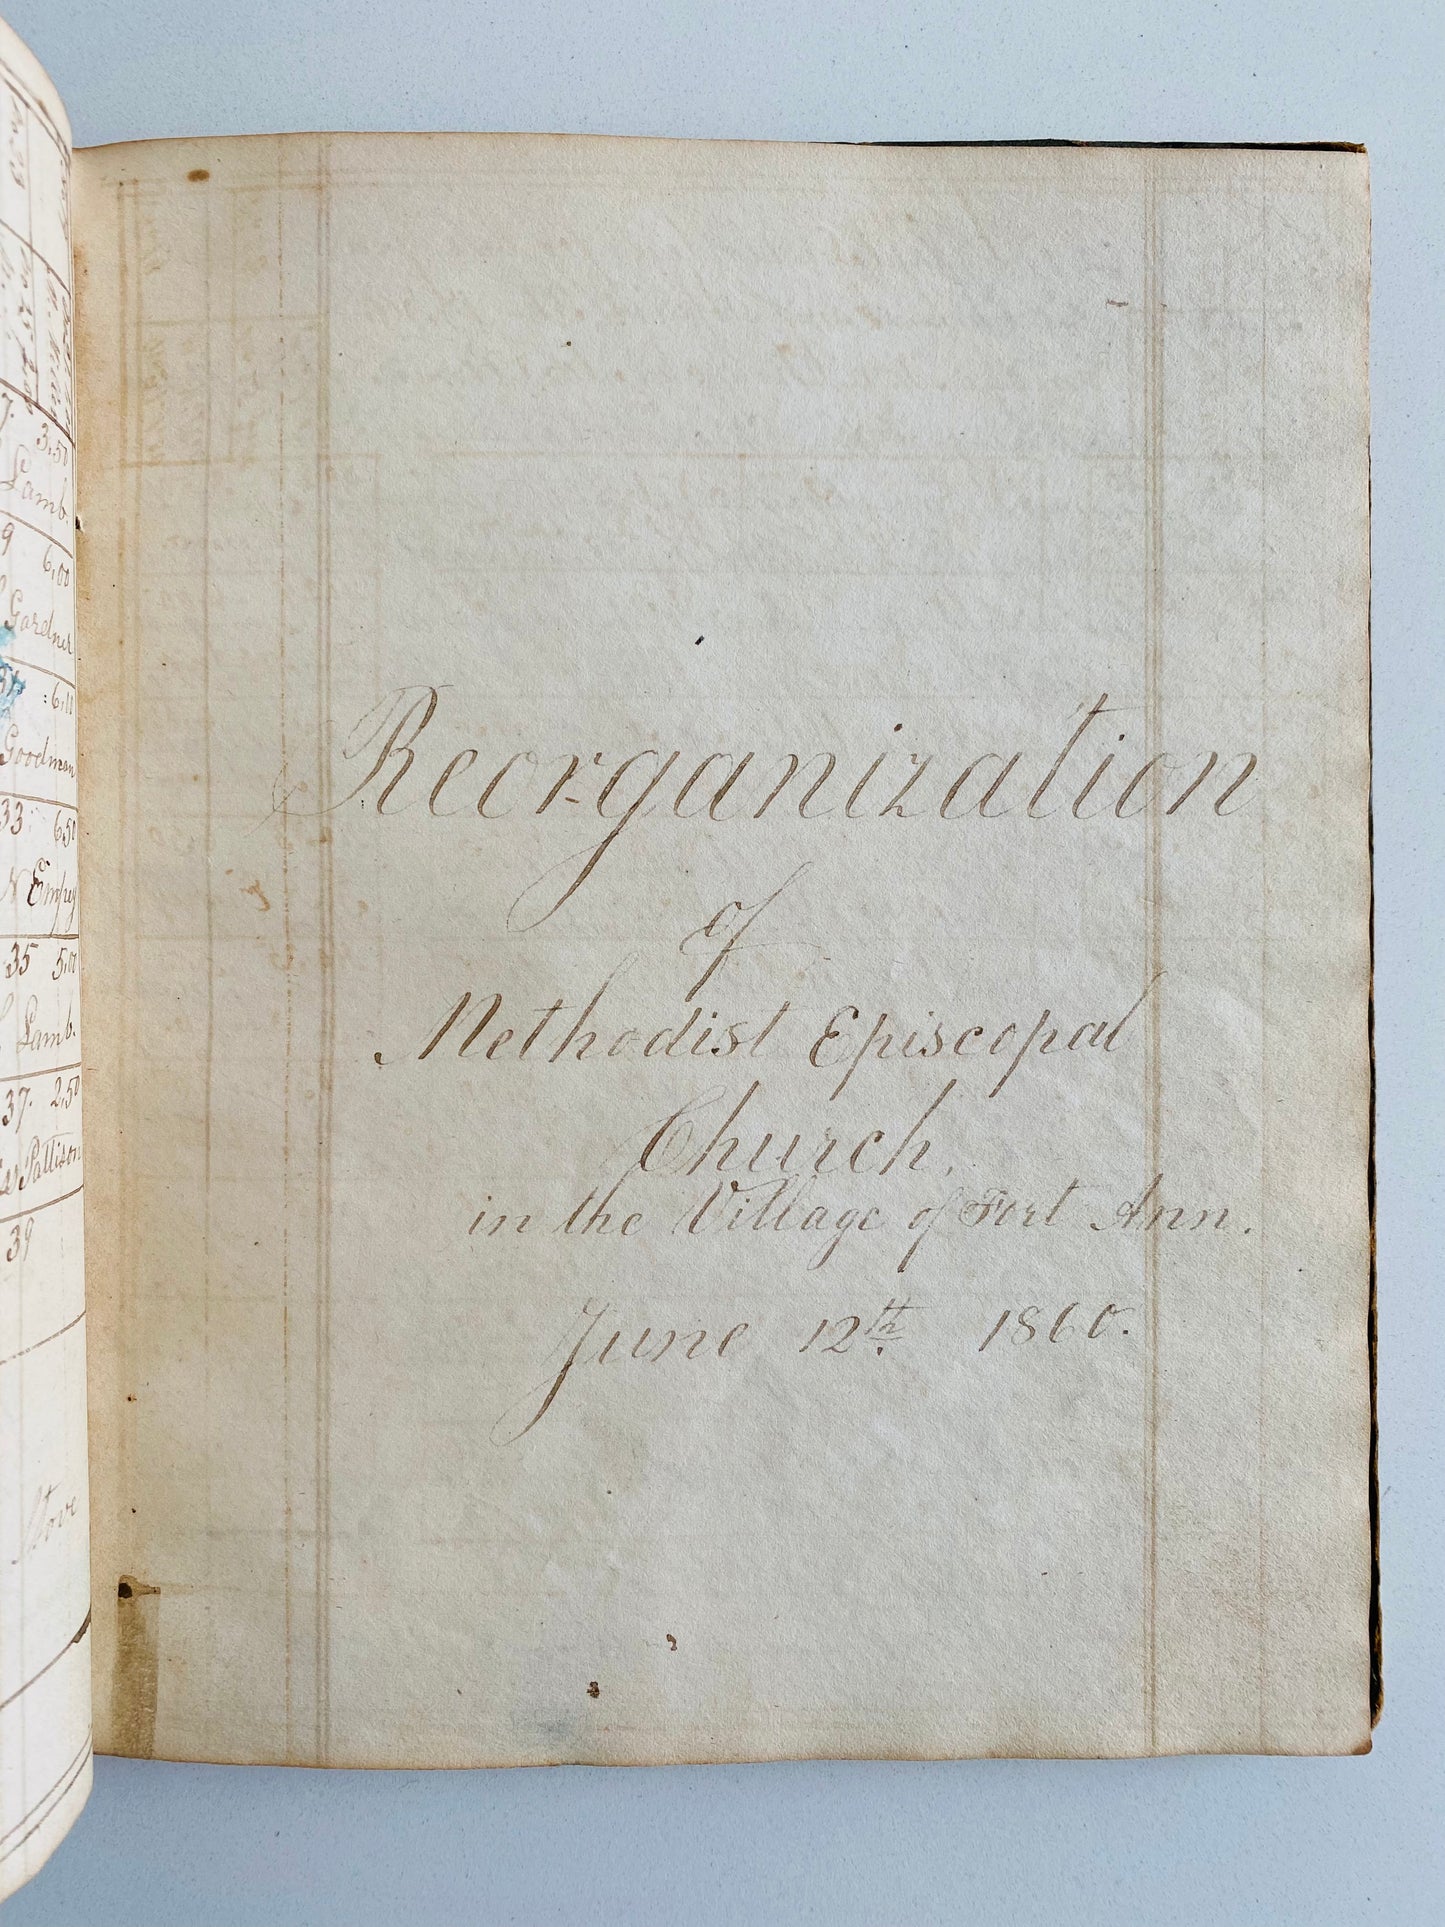 3,50
Lamb.
9 6,00
Gardner
: 6,11
Goodman
33 6,50
N Empey
35 5,00
Lamb.
37. 2,50
Pattison
39
Stove
Reorganization
of
Methodist Episcopal
Church,
in the Village of Fort Ann.
June 12th 1860.